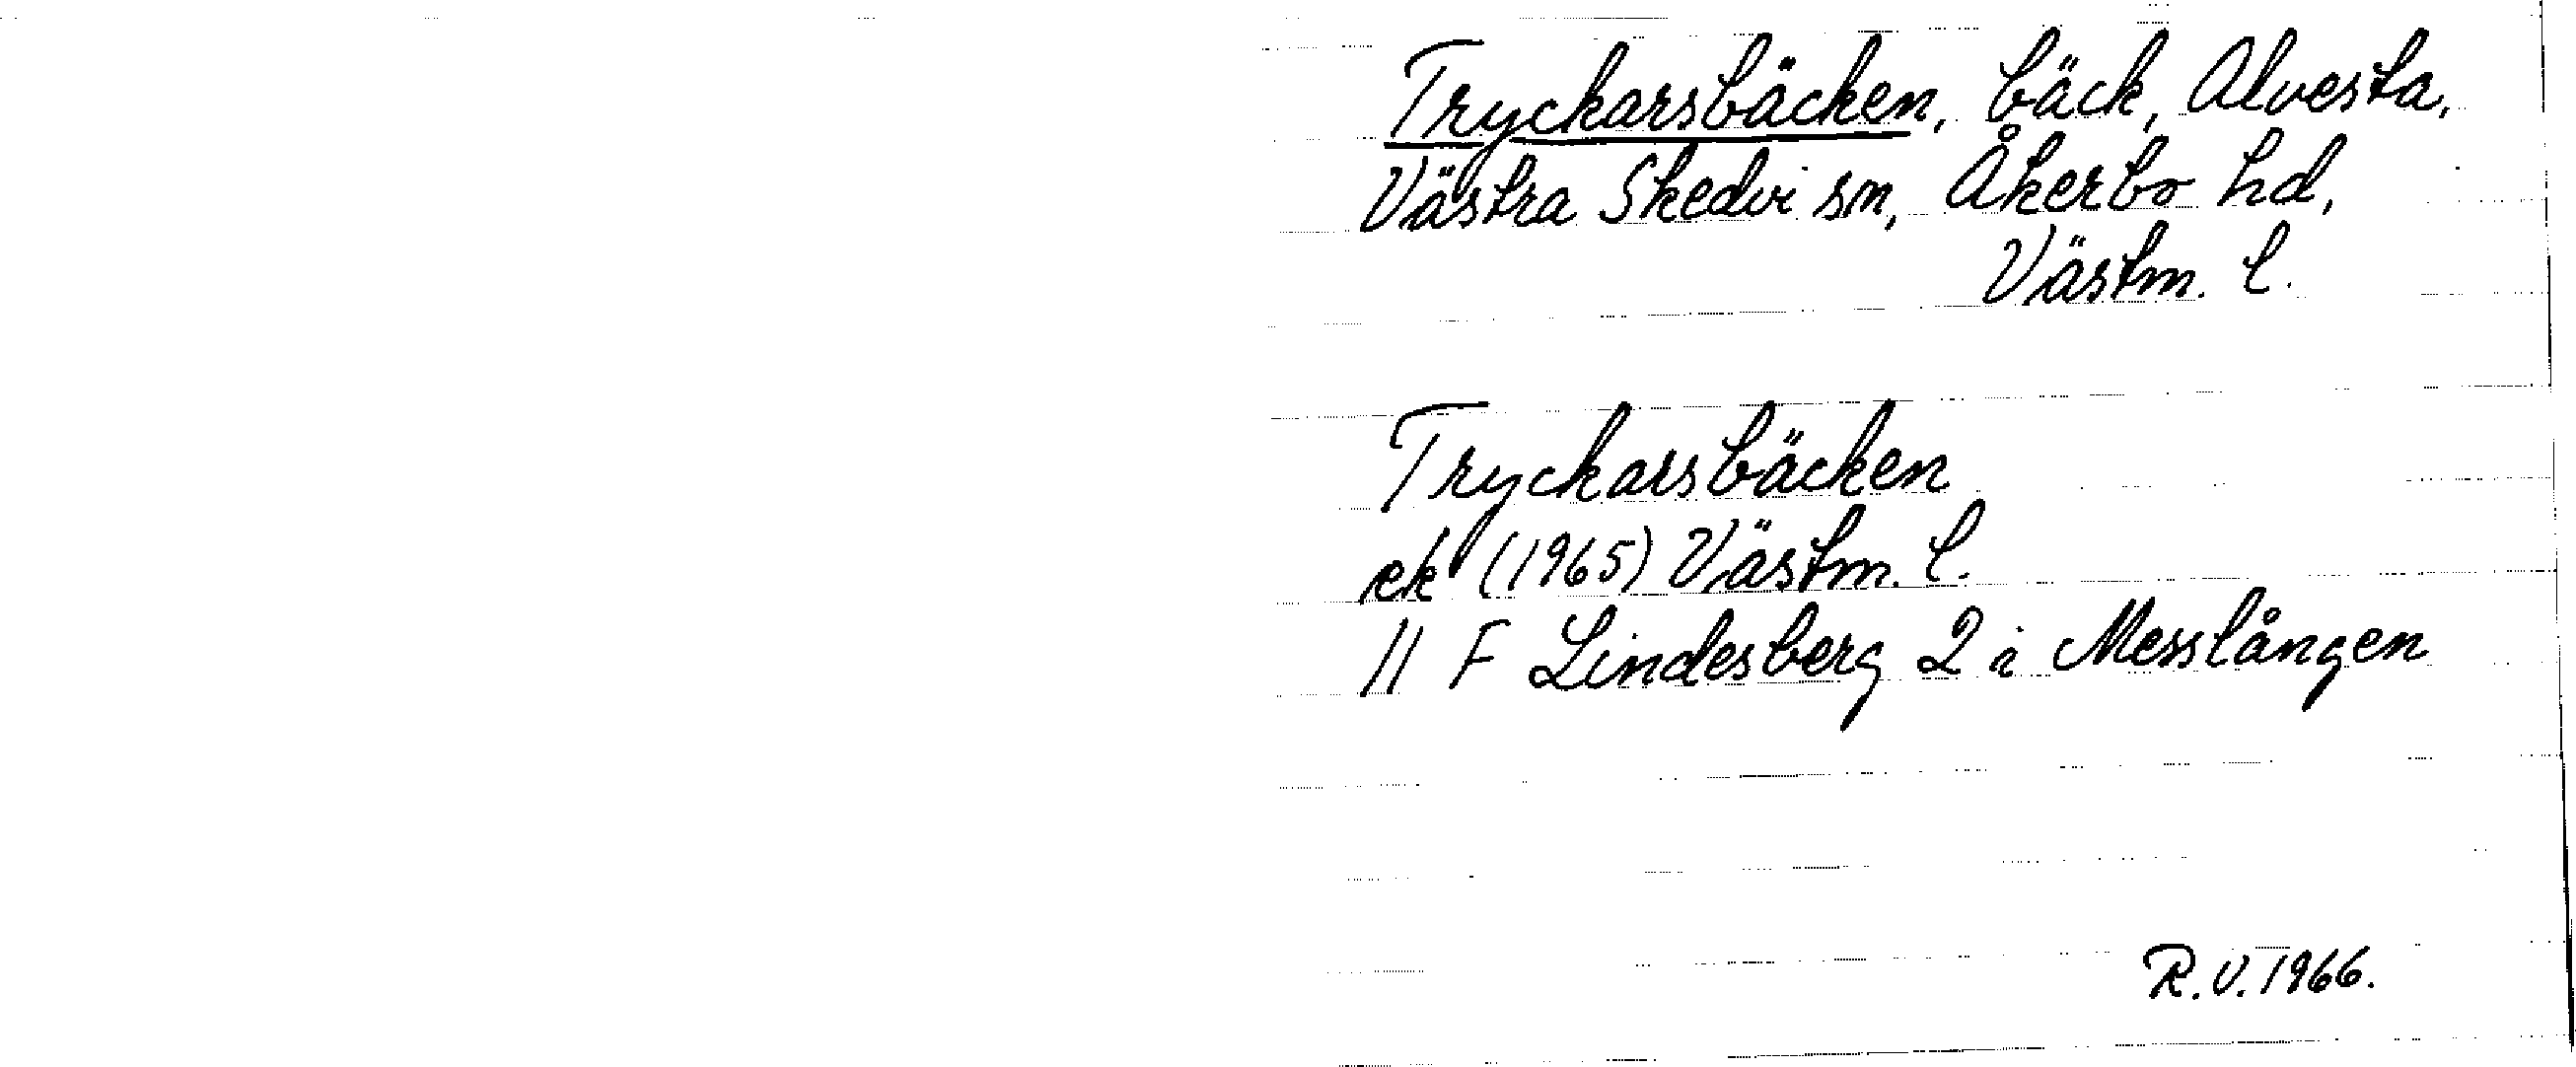 Tryckarsbäcken, bäck, Alvesta,
Västra Skedvi sn, Åkerbo hd,
Västm. l.
Tryckarsbäcken
ek (1965) Västm. l.
11 F Lindesberg 2 i Messlången
R.V. 1966.